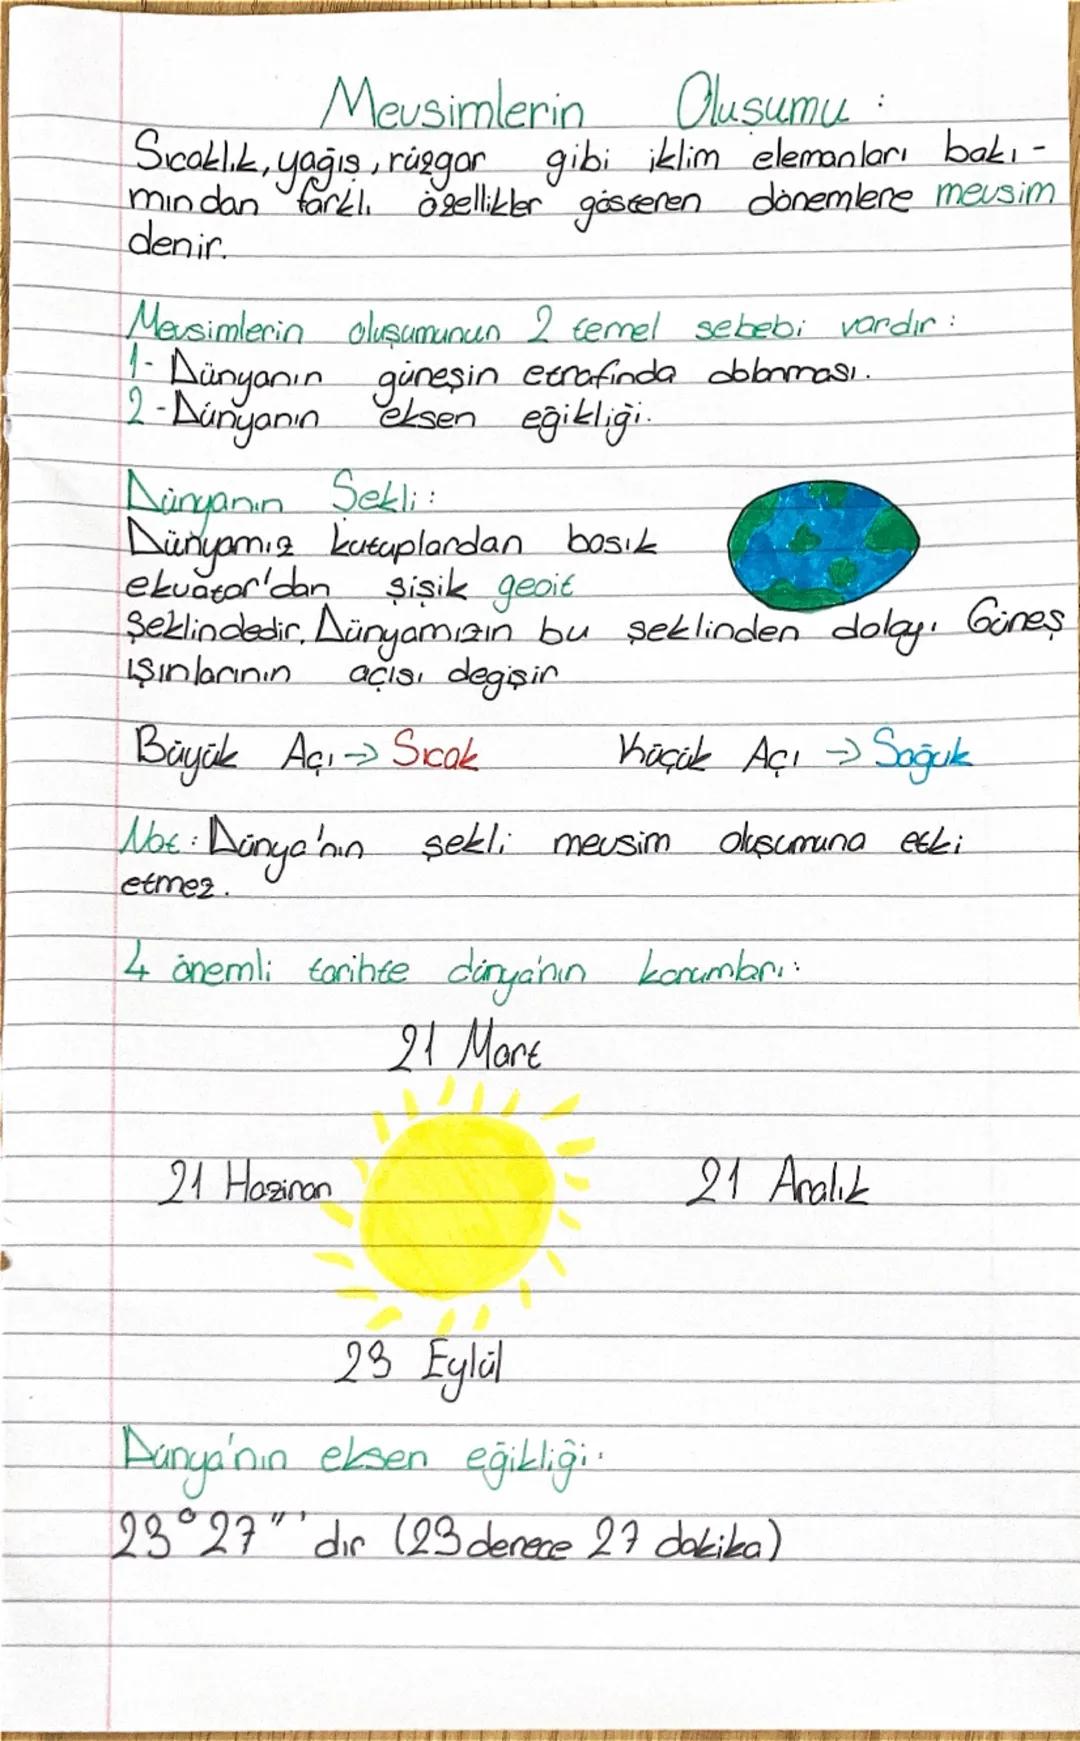 Mevsimlerin Oluşumu :
Sıcaklık, yağış, rüzgar gibi iklim elemanları bakı-
mından farklı özellikler gösteren dönemlere mevsim
denir.
Mevsimlerin oluşumunun 2 temel sebebi vardır :
1- Dünyanın güneşin etrafında dolanması.
2- Dünyanın eksen eğikliği.
Dünyanın Şekli :
Dünyamız kutuplardan basık
ekvator'dan şişik geoit
şeklindedir. Dünyamızın bu şeklinden dolayı Güneş
ışınlarının açısı değişir
Büyük Açı → Sıcak Küçük Açı → Soğuk
Not : Dünya'nın şekli mevsim oluşumuna etki
etmez.
4 önemli tarihte dünya'nın konumları :
21 Mart
21 Haziran 21 Aralık
23 Eylül
Dünya'nın eksen eğikliği :
23°27"' dır (23 derece 27 dakika)